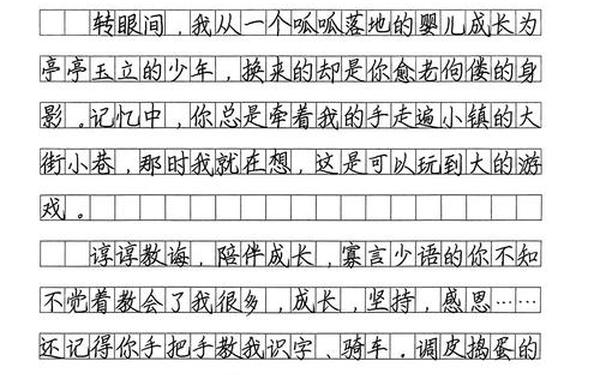 转眼间，我从一个呱呱落地的婴儿成长为
亭亭玉立的少年，换来的却是你愈老佝偻的身
影。记忆中，你总是牵着我的手走遍小镇的大
街小巷，那时我就在想，这是可以玩到大的游
戏。
谆谆教诲，陪伴成长，寡言少语的你不知
不觉着教会了我很多，成长，坚持，感恩……
还记得你手把手教我识字、骑车，调皮捣蛋的